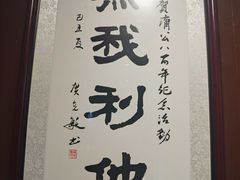 賀濟公八百年紀念活動
無我利他
己丑夏
敏书